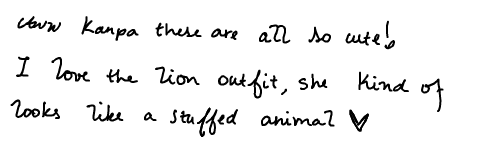 Kanpa these are all so cute!
I love the lion outfit, she kind of
looks like a stuffed animal ♥